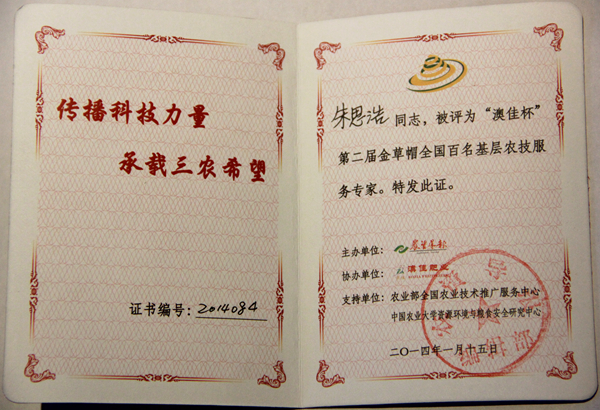 传播科技力量
承载三农希望
证书编号：2014084
朱思浩 同志，被评为“澳佳杯”
第二届金草帽全国百名基层农技服
务专家。特发此证。
主办单位：
协办单位：澳佳肥业
支持单位：农业部全国农业技术推广服务中心
中国农业大学资源环境与粮食安全研究中心
二〇一四年一月十五日
编辑部